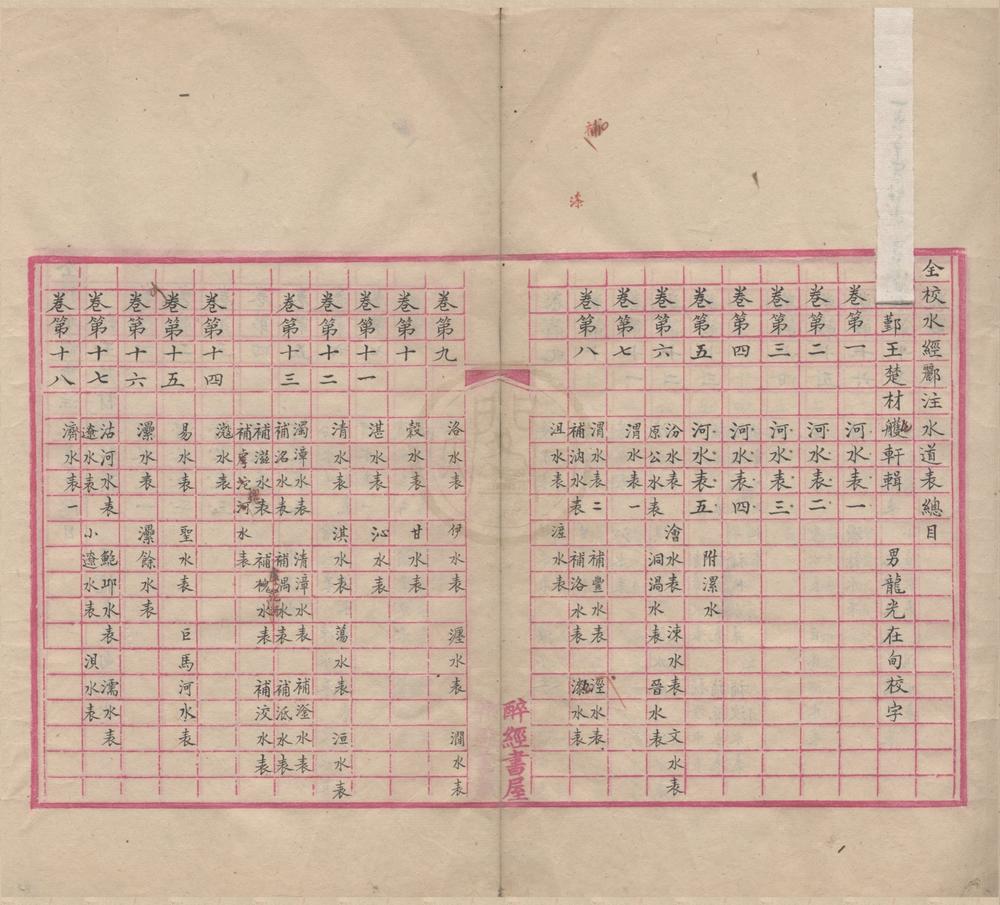 全校水經酈注水道表總目
鄞王楚材艧軒輯 男龍光在甸校字
卷第一 河水表一
卷第二 河水表二
卷第三 河水表三
卷第四 河水表四
卷第五 河水表五 附漯水
卷第六 汾水表 澮水表 涑水表 文水表
原公水表 洞渦水表 晉水表
卷第七 渭水表一
卷第八 渭水表二 補豐水表 涇水表
補汭水表 補洛水表 水表
沮水表 滻水表
補
漆
醉經書屋
卷第九 洛水表 伊水表 瀍水表 澗水表
卷第十 穀水表 甘水表
卷第十一 湛水表 沁水表
卷第十二 清水表 淇水表 蕩水表 洹水表
卷第十三 濁漳水表 清漳水表 補滏水表
補洺水表 補湡水表 補泜水表
補滋水表 補槐水表 補洨水表
補虖沱河水表
卷第十四 滱水表
卷第十五 易水表 聖水表 巨馬河水表
卷第十六 灅水表 灅餘水表
卷第十七 沽河水表 鮑邱水表 濡水表
遼水表 小遼水表 浿水表
卷第十八 濟水表一